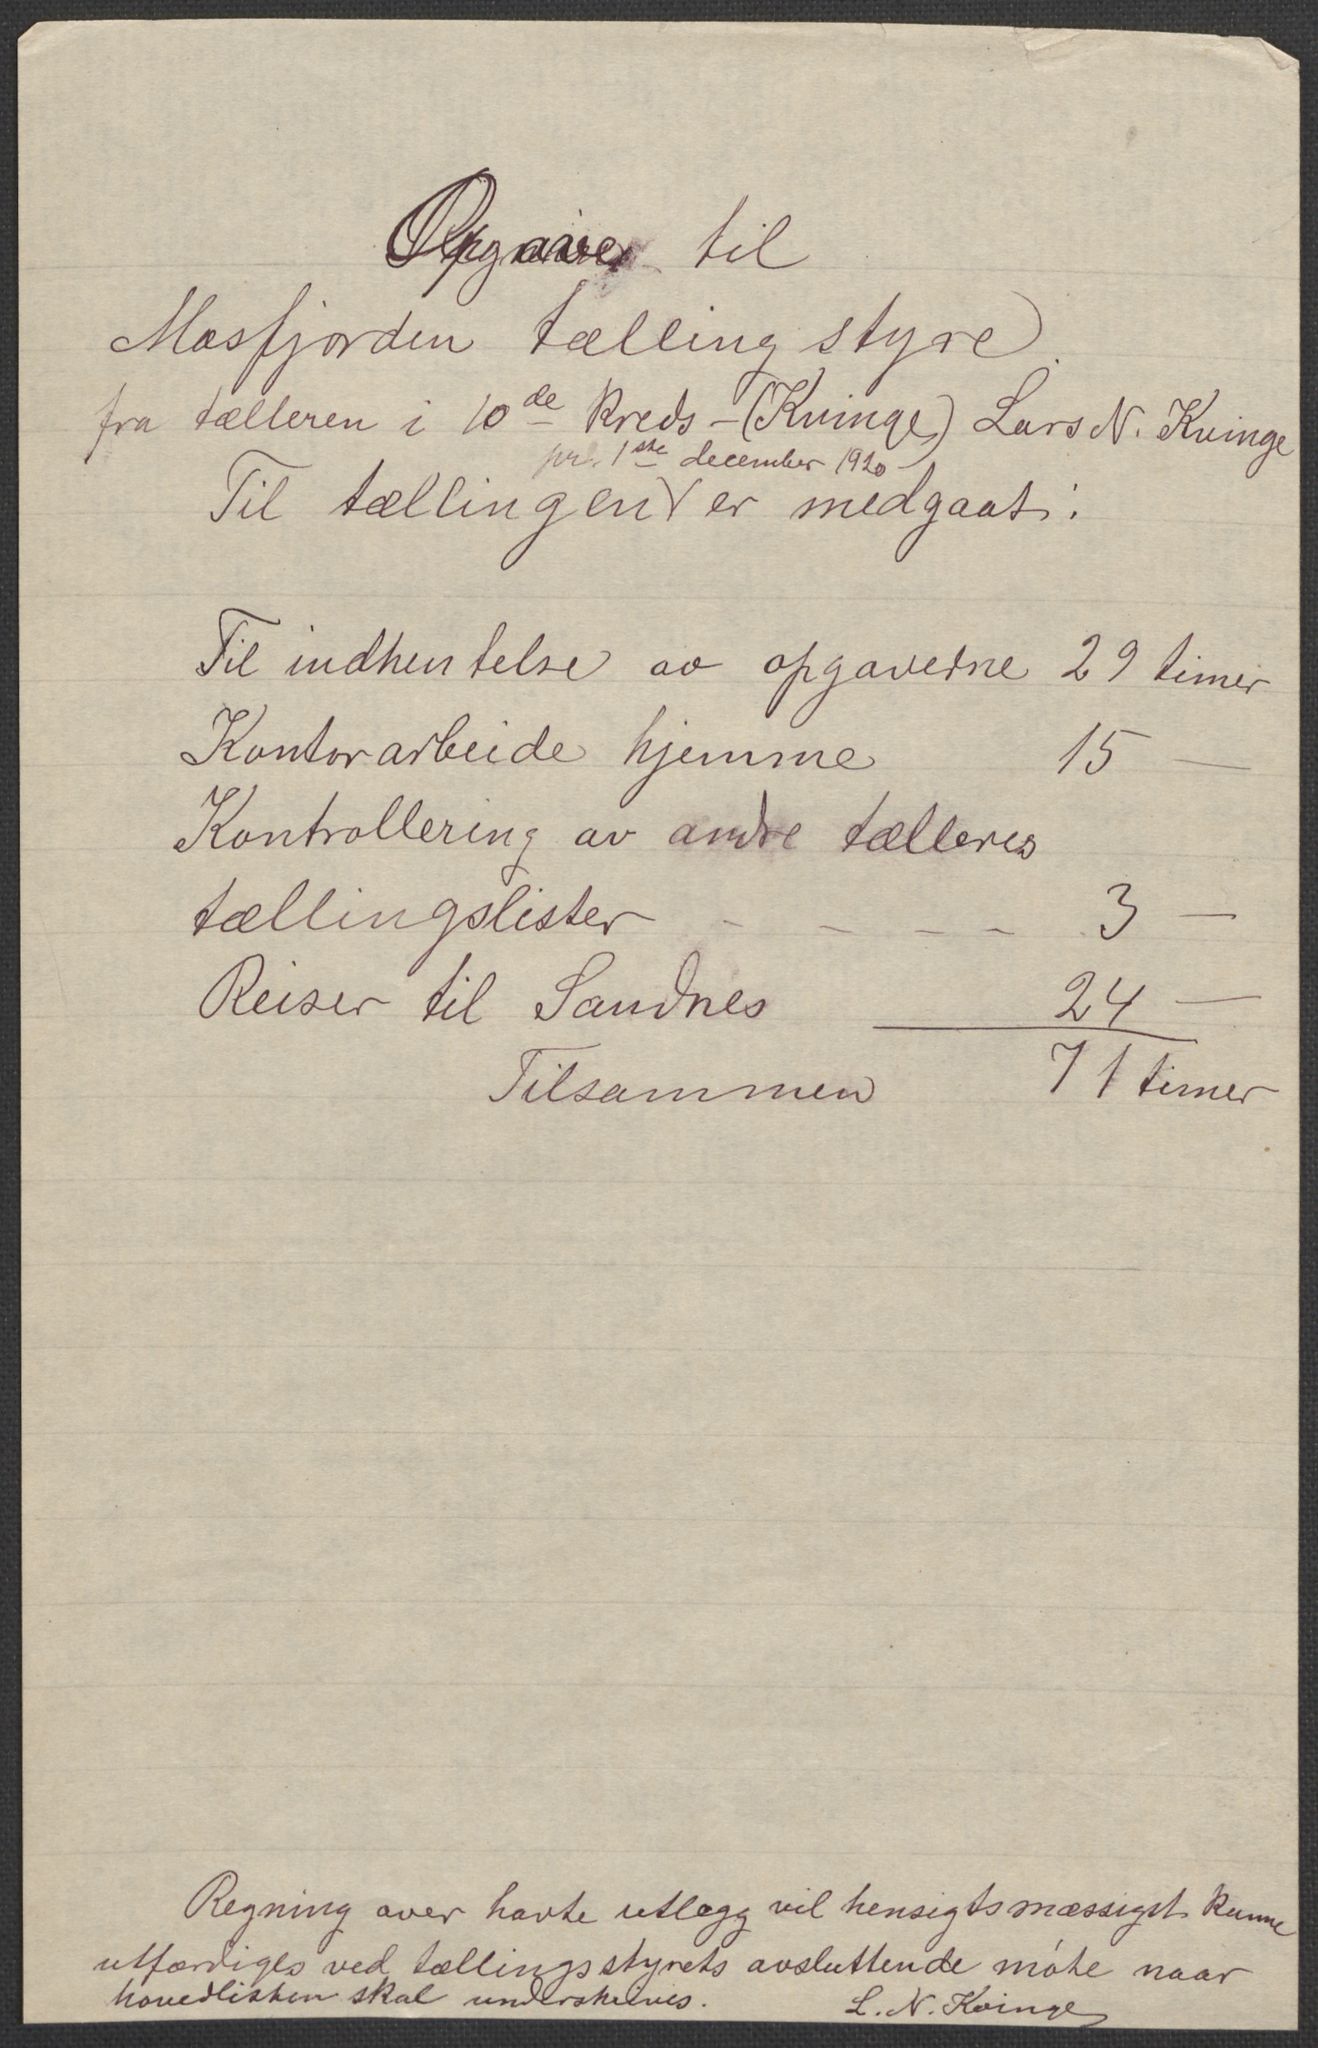 Opgave til
Masfjorden tælling styre
fra tælleren i 10de kreds - (Kvinge) Lars N. Kvinge
pr. 1ste december 1920
Til tællingen er medgaat:
Til indhentelse av opgaverne 29 timer
Kontorarbeide hjemme 15 —
Kontrollering av andre tælleres
tællingslister - - - - 3 —
Reiser til Sandnes 24 —
Tilsammen 71 timer
Regning over havte utlægg vil hensigtsmæssigst kunne
utfærdiges ved tællingsstyrets avsluttende møte naar
hovedlisten skal underskrives. L. N. Kvinge